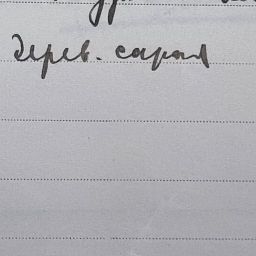 дерев. сарай